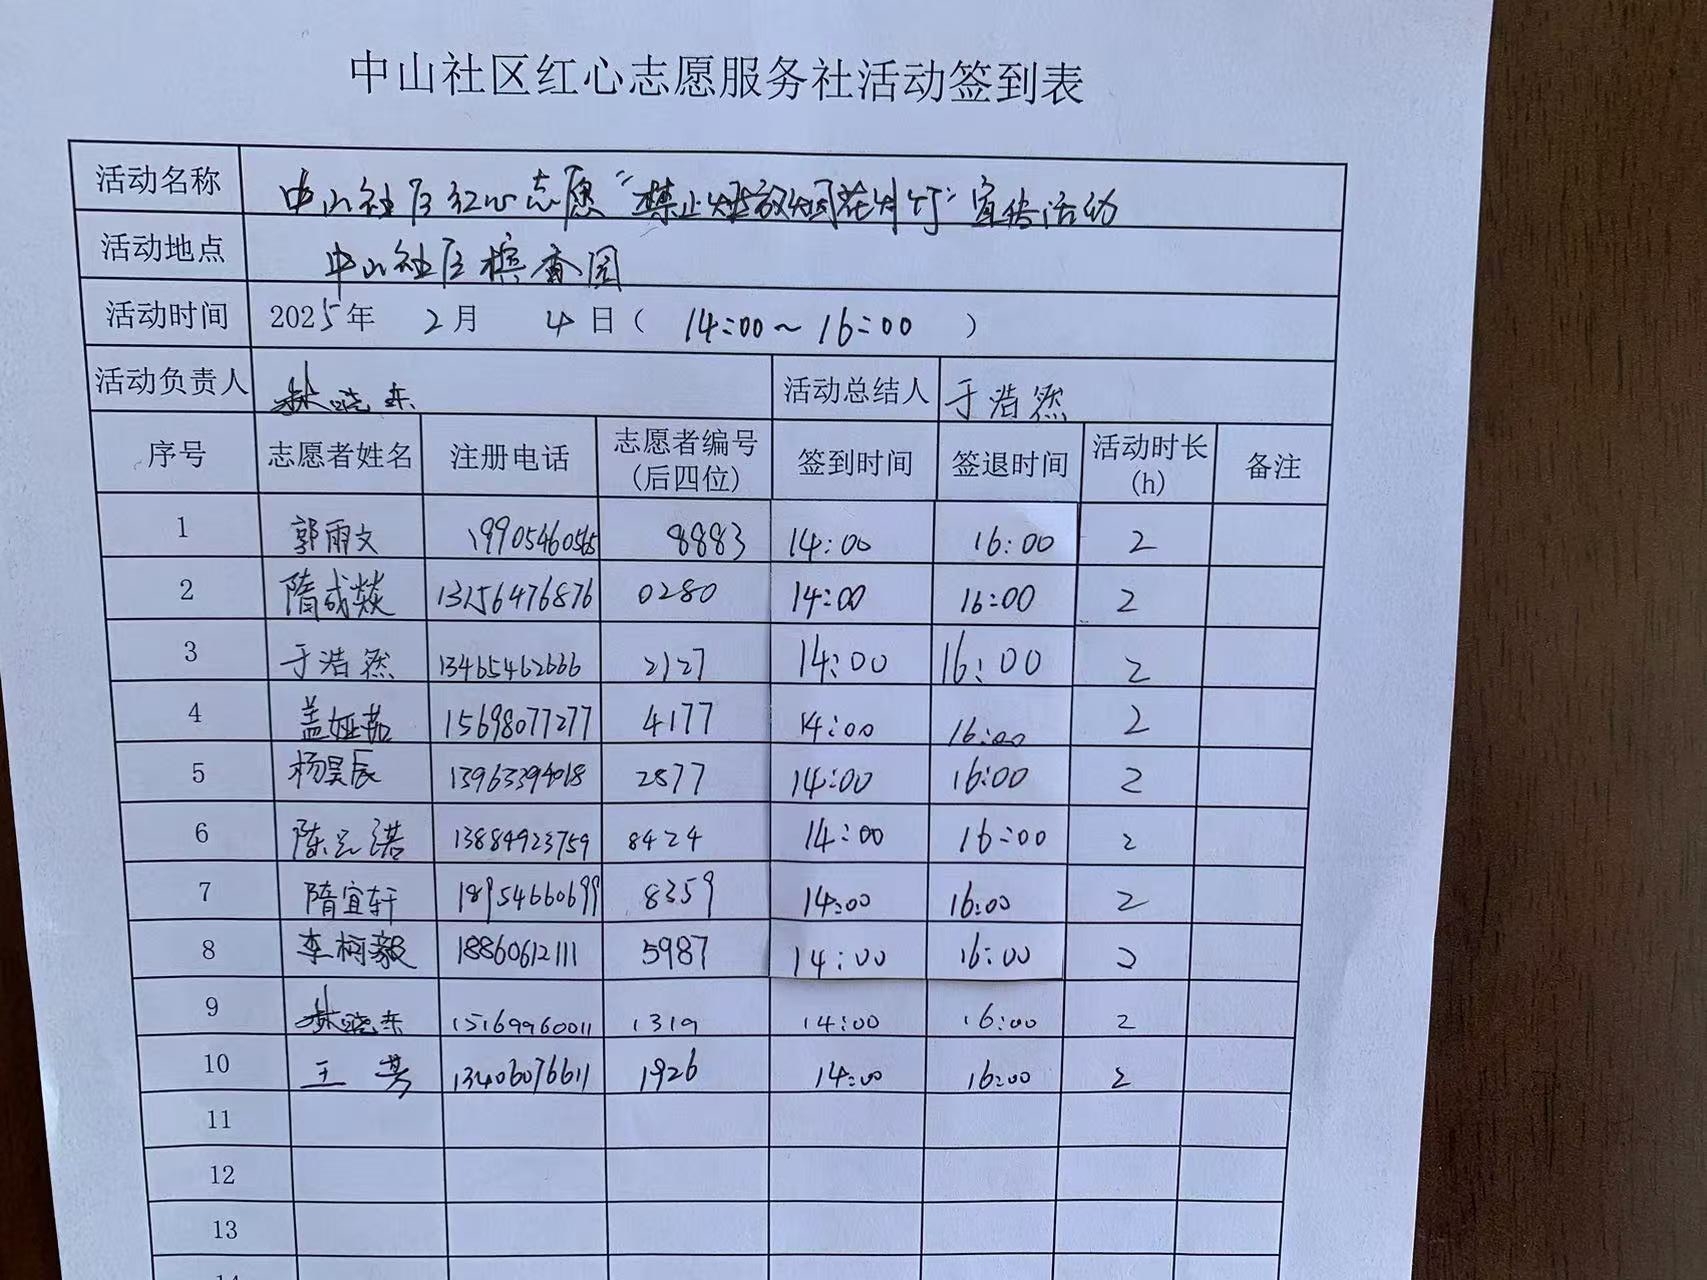 中山社区红心志愿服务社活动签到表
活动名称 中山社区红心志愿“禁止燃放烟花爆竹”宣传活动
活动地点 中山社区槟香园
活动时间 2025年 2月 4日( 14:00~16:00 )
活动负责人 林晓东 活动总结人 于浩然
序号 志愿者姓名 注册电话 志愿者编号(后四位) 签到时间 签退时间 活动时长(h) 备注
1 郭雨文 19905460565 8883 14:00 16:00 2
2 隋成燚 13156476876 0280 14:00 16:00 2
3 于浩然 13465462666 2127 14:00 16:00 2
4 盖娅茹 15698077277 4177 14:00 16:00 2
5 杨昊辰 13963394018 2877 14:00 16:00 2
6 13884923759 8424 14:00 16:00 2
7 隋宜轩 18954660699 8359 14:00 16:00 2
8 李柯毅 18860612111 5987 14:00 16:00 2
9 林晓东 15169960011 1319 14:00 16:00 2
10 王 13406076611 1926 14:00 16:00 2
11
12
13
14